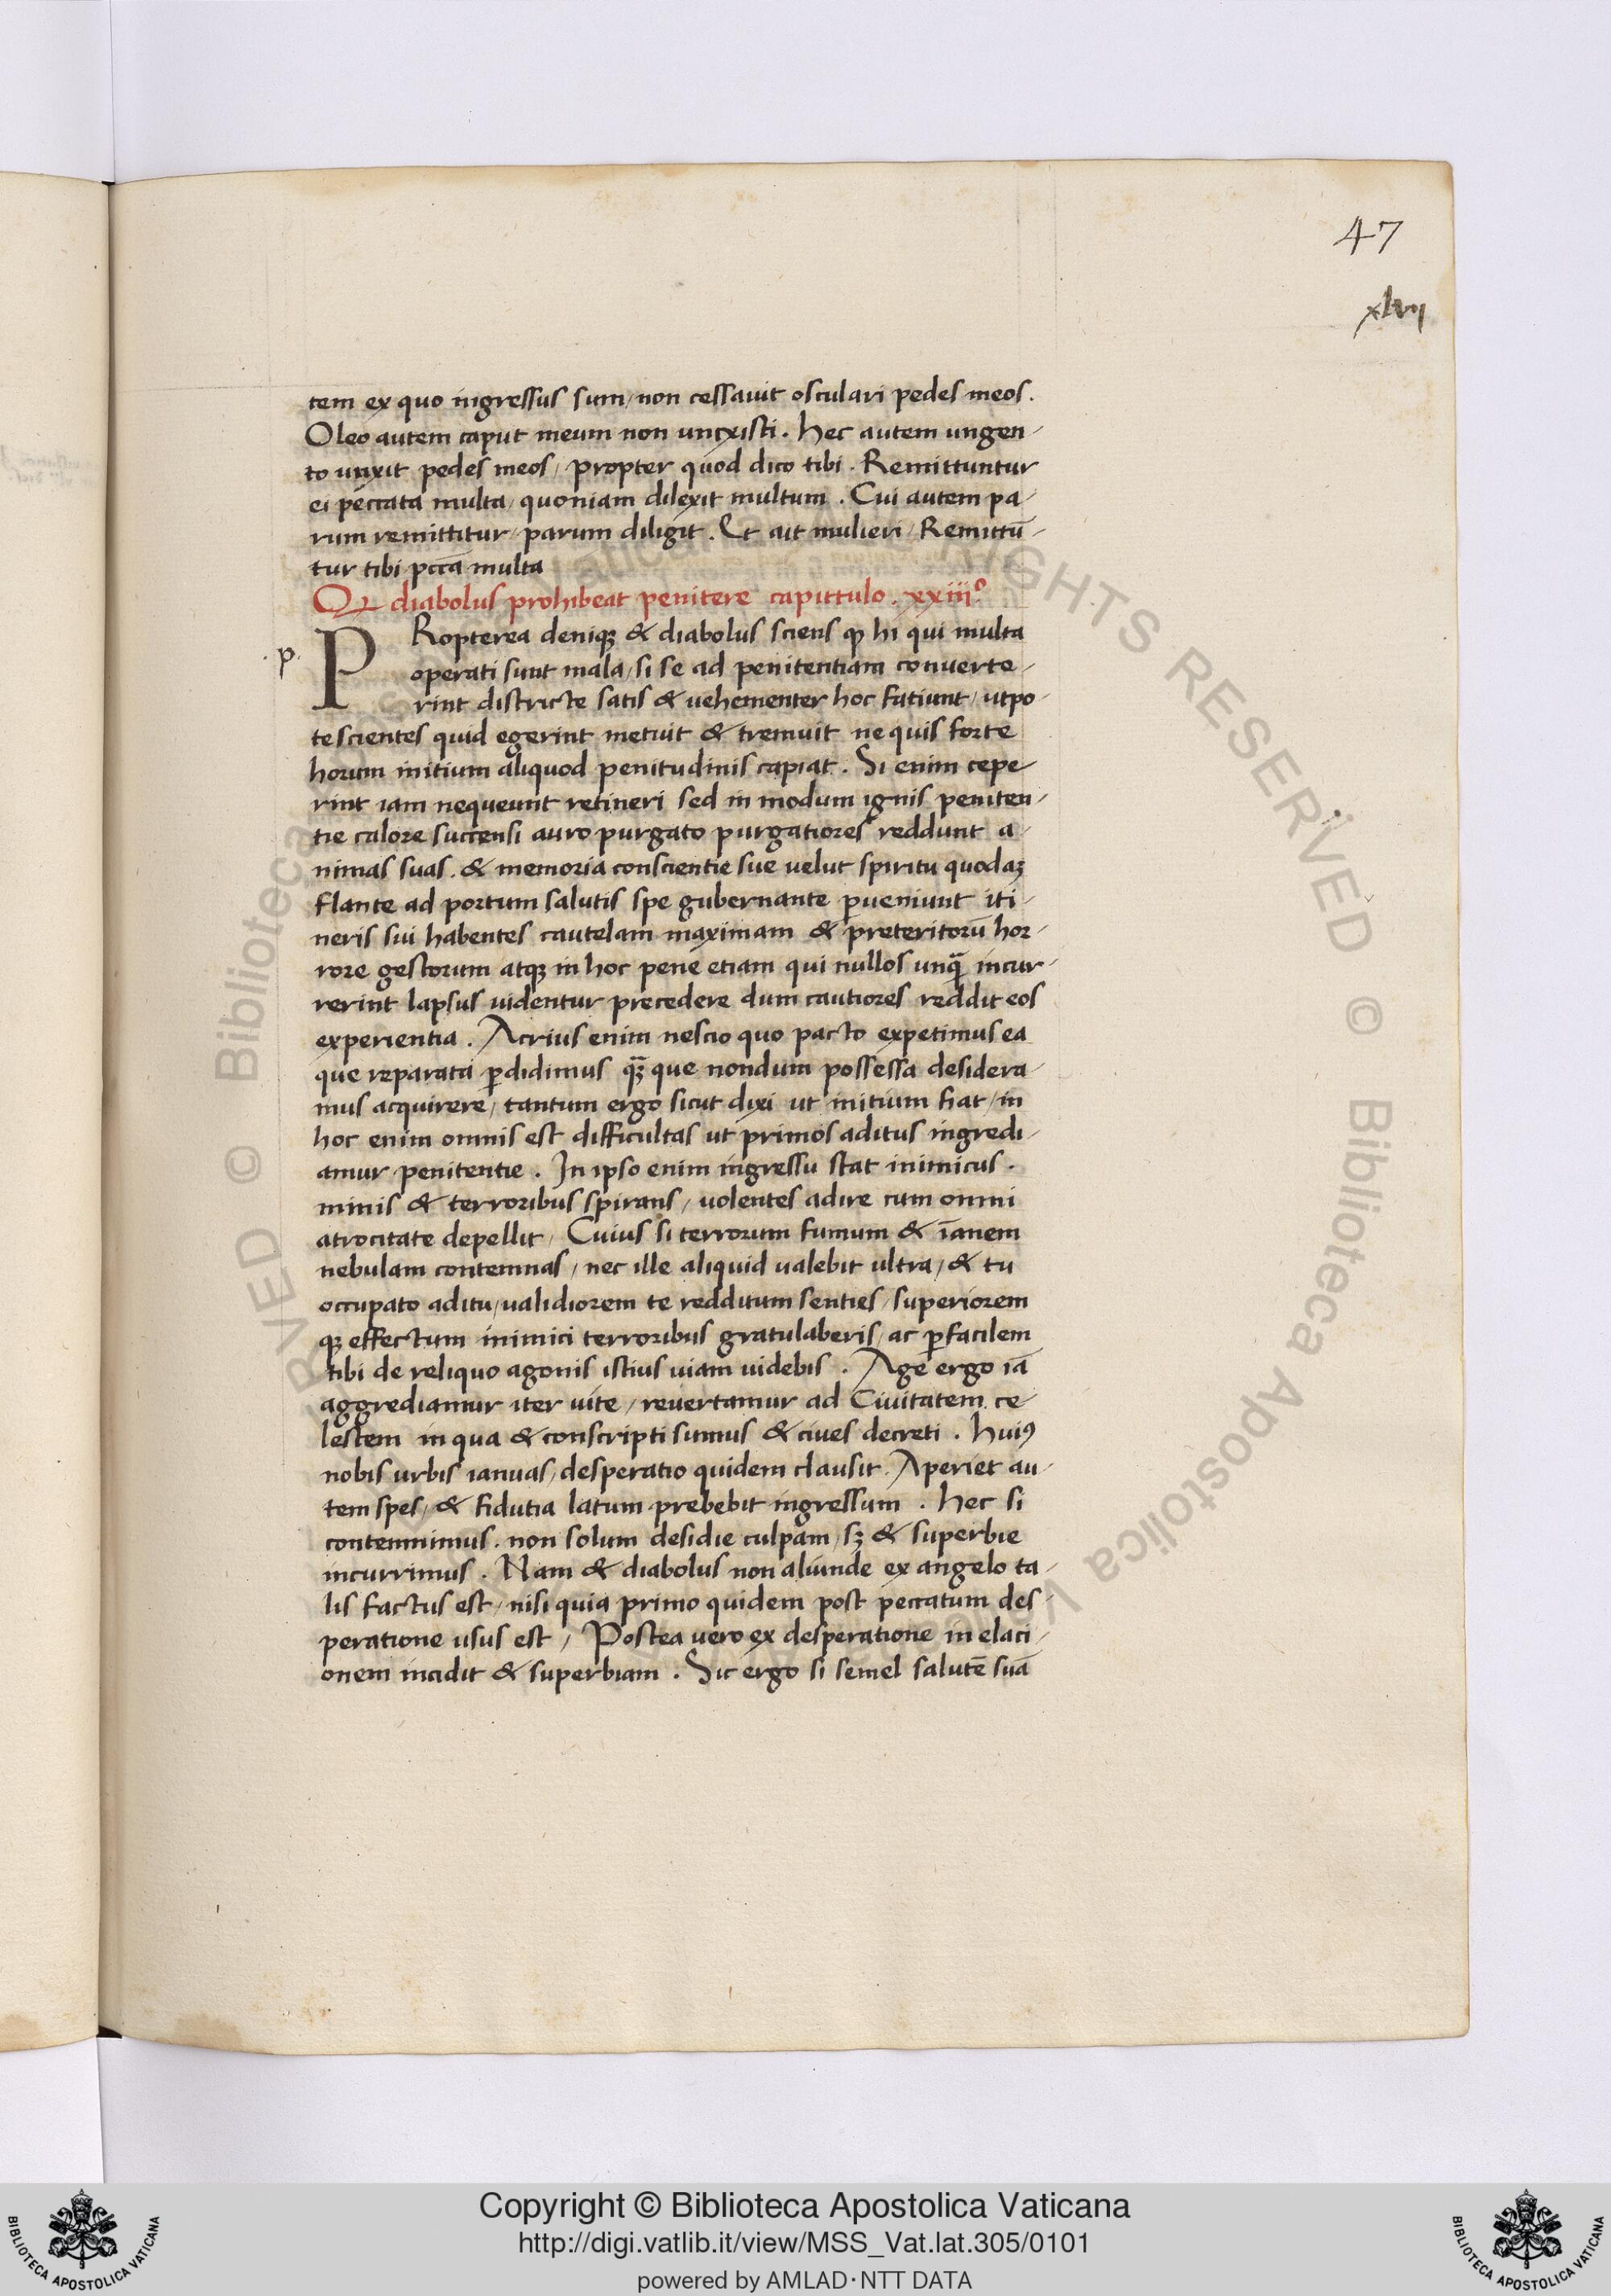 47
xlvii
tem ex quo ingressus sum / non cessauit osculari pedes meos.
Oleo autem caput meum non uncxisti. hec autem ungen-
to unxit pedes meos / propter quod dico tibi. Remittuntur
ei peccata multa / quoniam dilexit multum. Cui autem pa-
rum remittitur / parum diligit. Et ait mulieri / Remittū-
tur tibi pccā multa
Qꝫ diabolus prohibeat penitere capittulo. xxiiiº
.p.
PRopterea deniqꝫ & diabolus sciens ꝙ hi qui multa
operati sunt mala / si se ad penitentiam conuerte-
rint districte satis & uehementer hoc fatiunt / utpo-
te scientes quid egerint metuit & tremuit ne quis forte
horum initium aliquod penitudinis capiat. Si enim cepe-
rint iam nequeunt retineri sed in modum ignis peniten-
tie calore succensi auro purgato purgatiores reddunt a-
nimas suas. & memoria conscientie sue uelut spiritu quodaꝫ
flante ad portum salutis spe gubernante ꝑueniunt iti-
neris sui habentes cautelam maximam & preteritorū hor-
rore gestorum atqꝫ in hoc pene etiam qui nullos unq̄ incur-
rerint lapsus uidentur precedere dum cautiores reddit eos
experientia. Acrius enim nescio quo pacto expetimus ea
que reparata ꝑdidimus qꝫ̄ que nondum possessa desidera-
mus acquirere / tantum ergo sicut dixi ut initium fiat / in
hoc enim omnis est difficultas ut primos aditus ingredi-
amur penitentie. In ipso enim ingressu stat inimicus.
minis & terroribus spirans / uolentes adire cum omni
atrocitate depellit / Cuius si terrorum fumum & īanem
nebulam contemnas / nec ille aliquid ualebit ultra / & tu
occupato aditu / ualidiorem te redditum senties / superiorem
qꝫ effectum inimici terroribus gratulaberis / ac ꝑfacilem
tibi de reliquo agonis istius uiam uidebis. Age ergo iā
aggrediamur iter uite / reuertamur ad Ciuitatem ce-
lestem in qua & conscripti sumus & ciues decreti. huiꝰ
nobis urbis ianuas / desperatio quidem clausit. Aperiet au-
tem spes / & fidutia latum prebebit ingressum. hec si
contemnimus. non solum desidie culpam / sꝫ & superbie
incurrimus. Nam & diabolus non aliunde ex angelo ta-
lis factus est / nisi quia primo quidem post peccatum des-
peratione usus est / Postea uero ex desperatione in elaci-
onem incidit & superbiam. Sic ergo si semel salutē suā
Copyright © Biblioteca Apostolica Vaticana
http://digi.vatlib.it/view/MSS_Vat.lat.305/0101
powered by AMLAD·NTT DATA